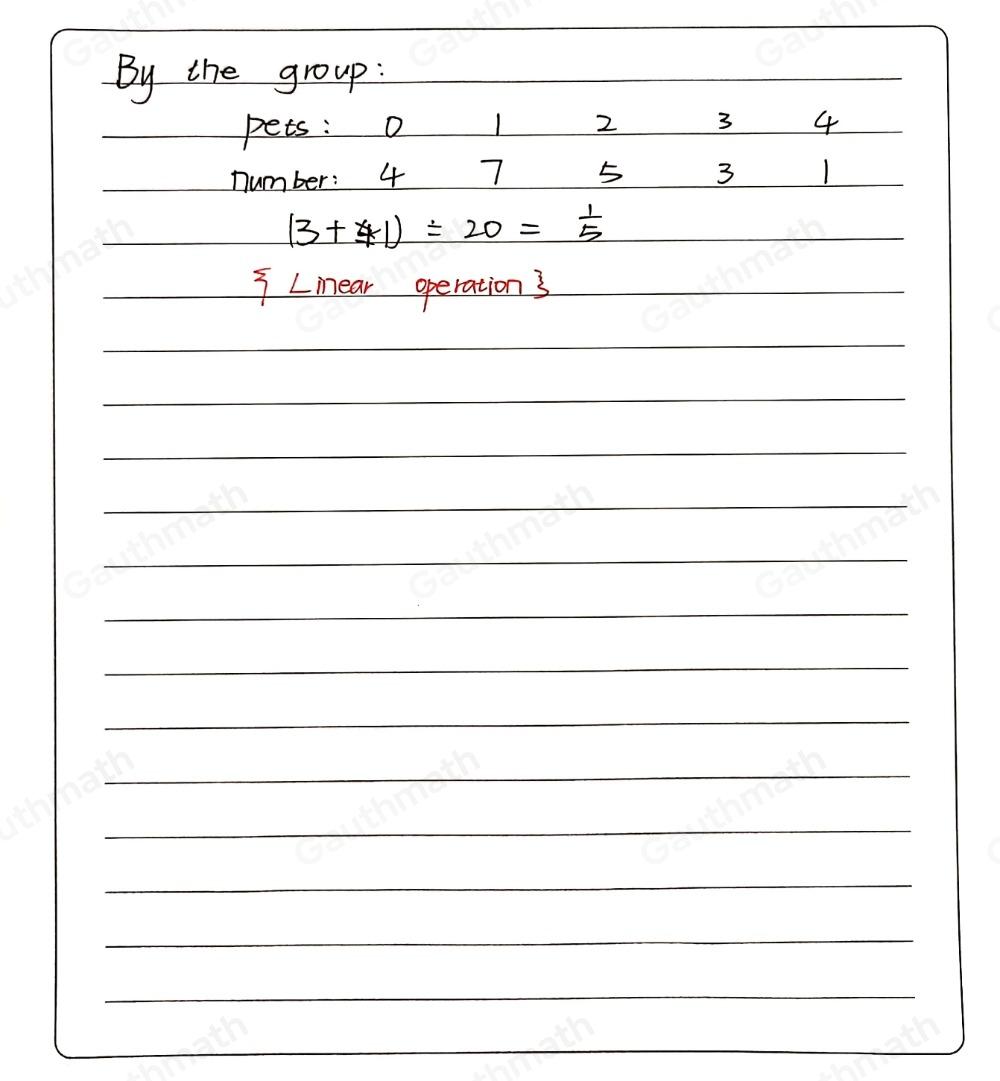 By the group:
pets: 0 1 2 3 4
number: 4 7 5 3 1
(3+1) ÷ 20 = 1/5
{ Linear operation }
Gauthmath